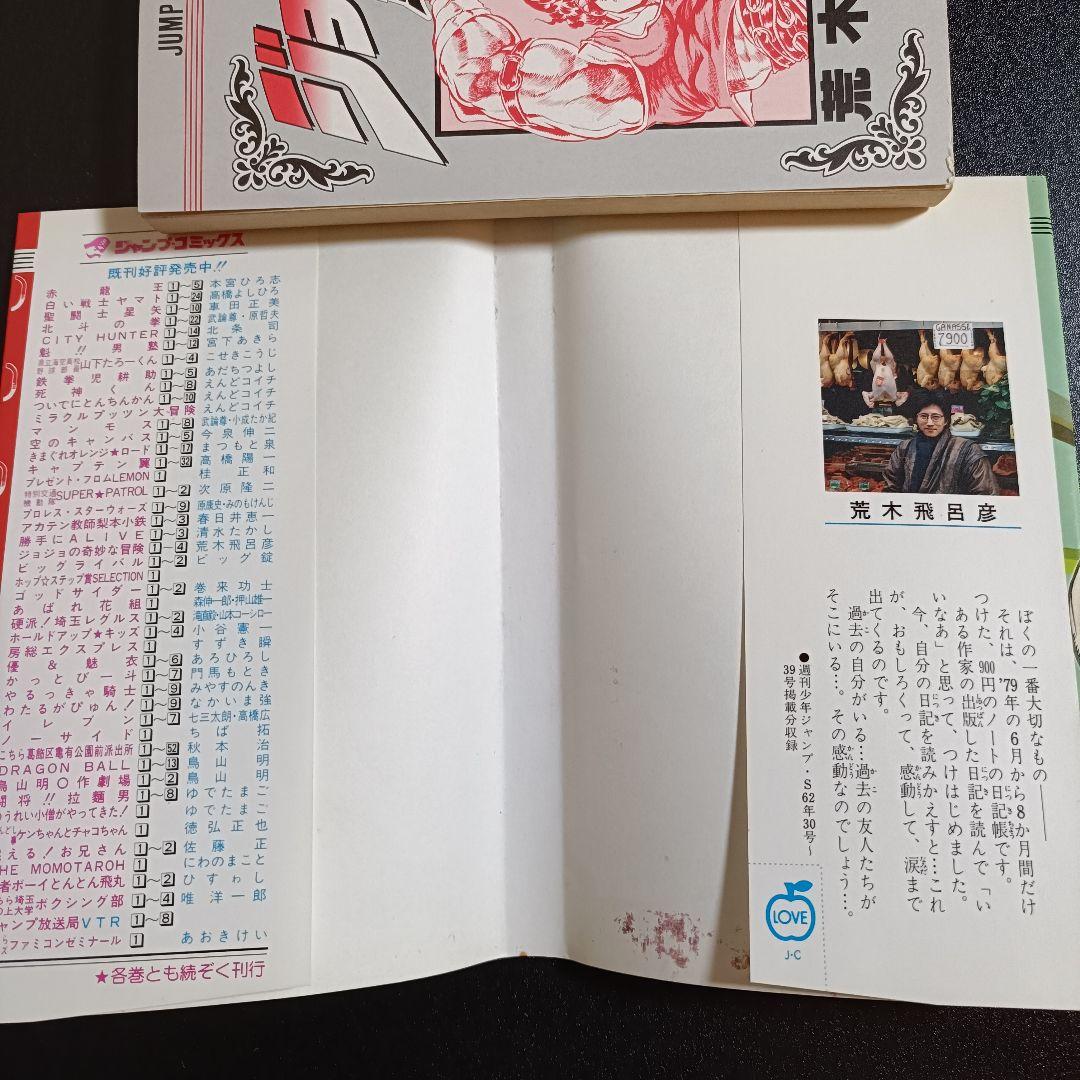 JUMP
ジョ
荒木
ジャンプ・コミックス
既刊好評発売中!!
赤龍王 1〜5 本宮ひろ志
白い戦士ヤマト 1〜24 高橋よしひろ
聖闘士星矢 1〜10 車田正美
北斗の拳 1〜22 武論尊・原哲夫
CITY HUNTER 1〜14 北条司
魁!!男塾 1〜12 宮下あきら
県立海空高校野球部員山下たろーくん 1〜4 こせきこうじ
鉄拳児耕助 1〜5 あだちつよし
死神くん 1〜8 えんどコイチ
ついでにとんちんかん 1〜10 えんどコイチ
ミラクルプッツン大冒険 えんどコイチ
マンモス 1〜8 武論尊・小成たか紀
空のキャンバス 1〜5 今泉伸二
きまぐれオレンジ★ロード 1〜17 まつもと泉
キャプテン翼 1〜32 高橋陽一
プレゼント・フロムLEMON 1 桂正和
特別交通機動隊SUPER★PATROL 1〜2 次原隆二
プロレス・スターウォーズ 1〜9 原康史・みのもけんじ
アカテン教師梨本小鉄 1〜3 春日井恵一
勝手にALIVE 1〜3 清水たかし
ジョジョの奇妙な冒険 1〜4 荒木飛呂彦
ビッグライバル 1〜2 ビッグ錠
ホップ☆ステップ賞SELECTION 1
ゴッドサイダー 1〜2 巻来功士
あばれ花組 1 森伸一郎・押山雄一
硬派!埼玉レグルス 1〜2 滝直毅・山本コーシロー
ホールドアップ★キッズ 1〜4 小谷憲一
房総エクスプレス 1 すずき瞬
優&魅衣 1〜6 あろひろし
かっとび一斗 1〜7 門馬もとき
やるっきゃ騎士 1〜9 みやすのんき
わたるがぴゅん! 1〜9 なかいま強
イレブン 1〜7 七三太朗・高橋広
ノーサイド 1 ちば拓
こちら葛飾区亀有公園前派出所 1〜52 秋本治
DRAGON BALL 1〜13 鳥山明
鳥山明○作劇場 1〜2 鳥山明
闘将!!拉麵男 1〜8 ゆでたまご
うれい小僧がやってきた! 1 ゆでたまご
ケンちゃんとチャコちゃん 1 徳弘正也
える!お兄さん 1〜2 佐藤正
THE MOMOTAROH 1 にわのまこと
者ボーイとんとん飛丸 1〜2 ひすゎし
ら埼玉の上大学ボクシング部 1〜4 唯洋一郎
ャンプ放送局VTR 1〜8
ファミコンゼミナール 1 あおきけい
★各巻とも続ぞく刊行
GANASSE
7900
荒木飛呂彦
ぼくの一番大切なもの――
それは、'79年の6月から8か月間だけ
つけた、900円のノートの日記帳です。
ある作家の出版した日記を読んで「い
いなあ」と思って、つけはじめました。
今、自分の日記を読みかえすと…これ
が、おもしろくって、感動して、涙まで
出てくるのです。
過去の自分がいる…過去の友人たちが
そこにいる…。その感動なのでしょう…。
●週刊少年ジャンプ・S62年30号〜
39号掲載分収録
LOVE
J・C